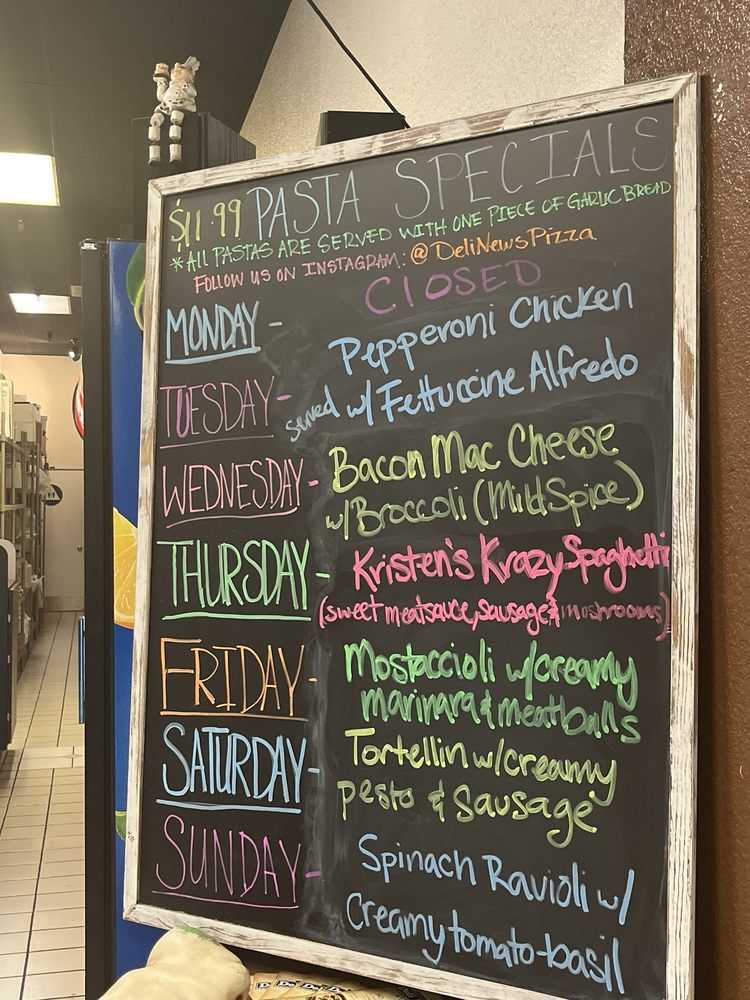 $11.99 PASTA SPECIALS
*ALL PASTAS ARE SERVED WITH ONE PIECE OF GARLIC BREAD
FOLLOW US ON INSTAGRAM: @DeliNewsPizza
MONDAY - CLOSED
Pepperoni Chicken
TUESDAY - served w/ Fettuccine Alfredo
WEDNESDAY - Bacon Mac Cheese
w/Broccoli (Mild Spice)
THURSDAY - Kristen's Krazy Spaghetti
(sweet meatsauce, sausage & mushrooms)
FRIDAY - Mostaccioli w/creamy
marinara & meatballs
SATURDAY - Tortellin w/creamy
pesto & Sausage
SUNDAY - Spinach Ravioli w/
Creamy tomato-basil